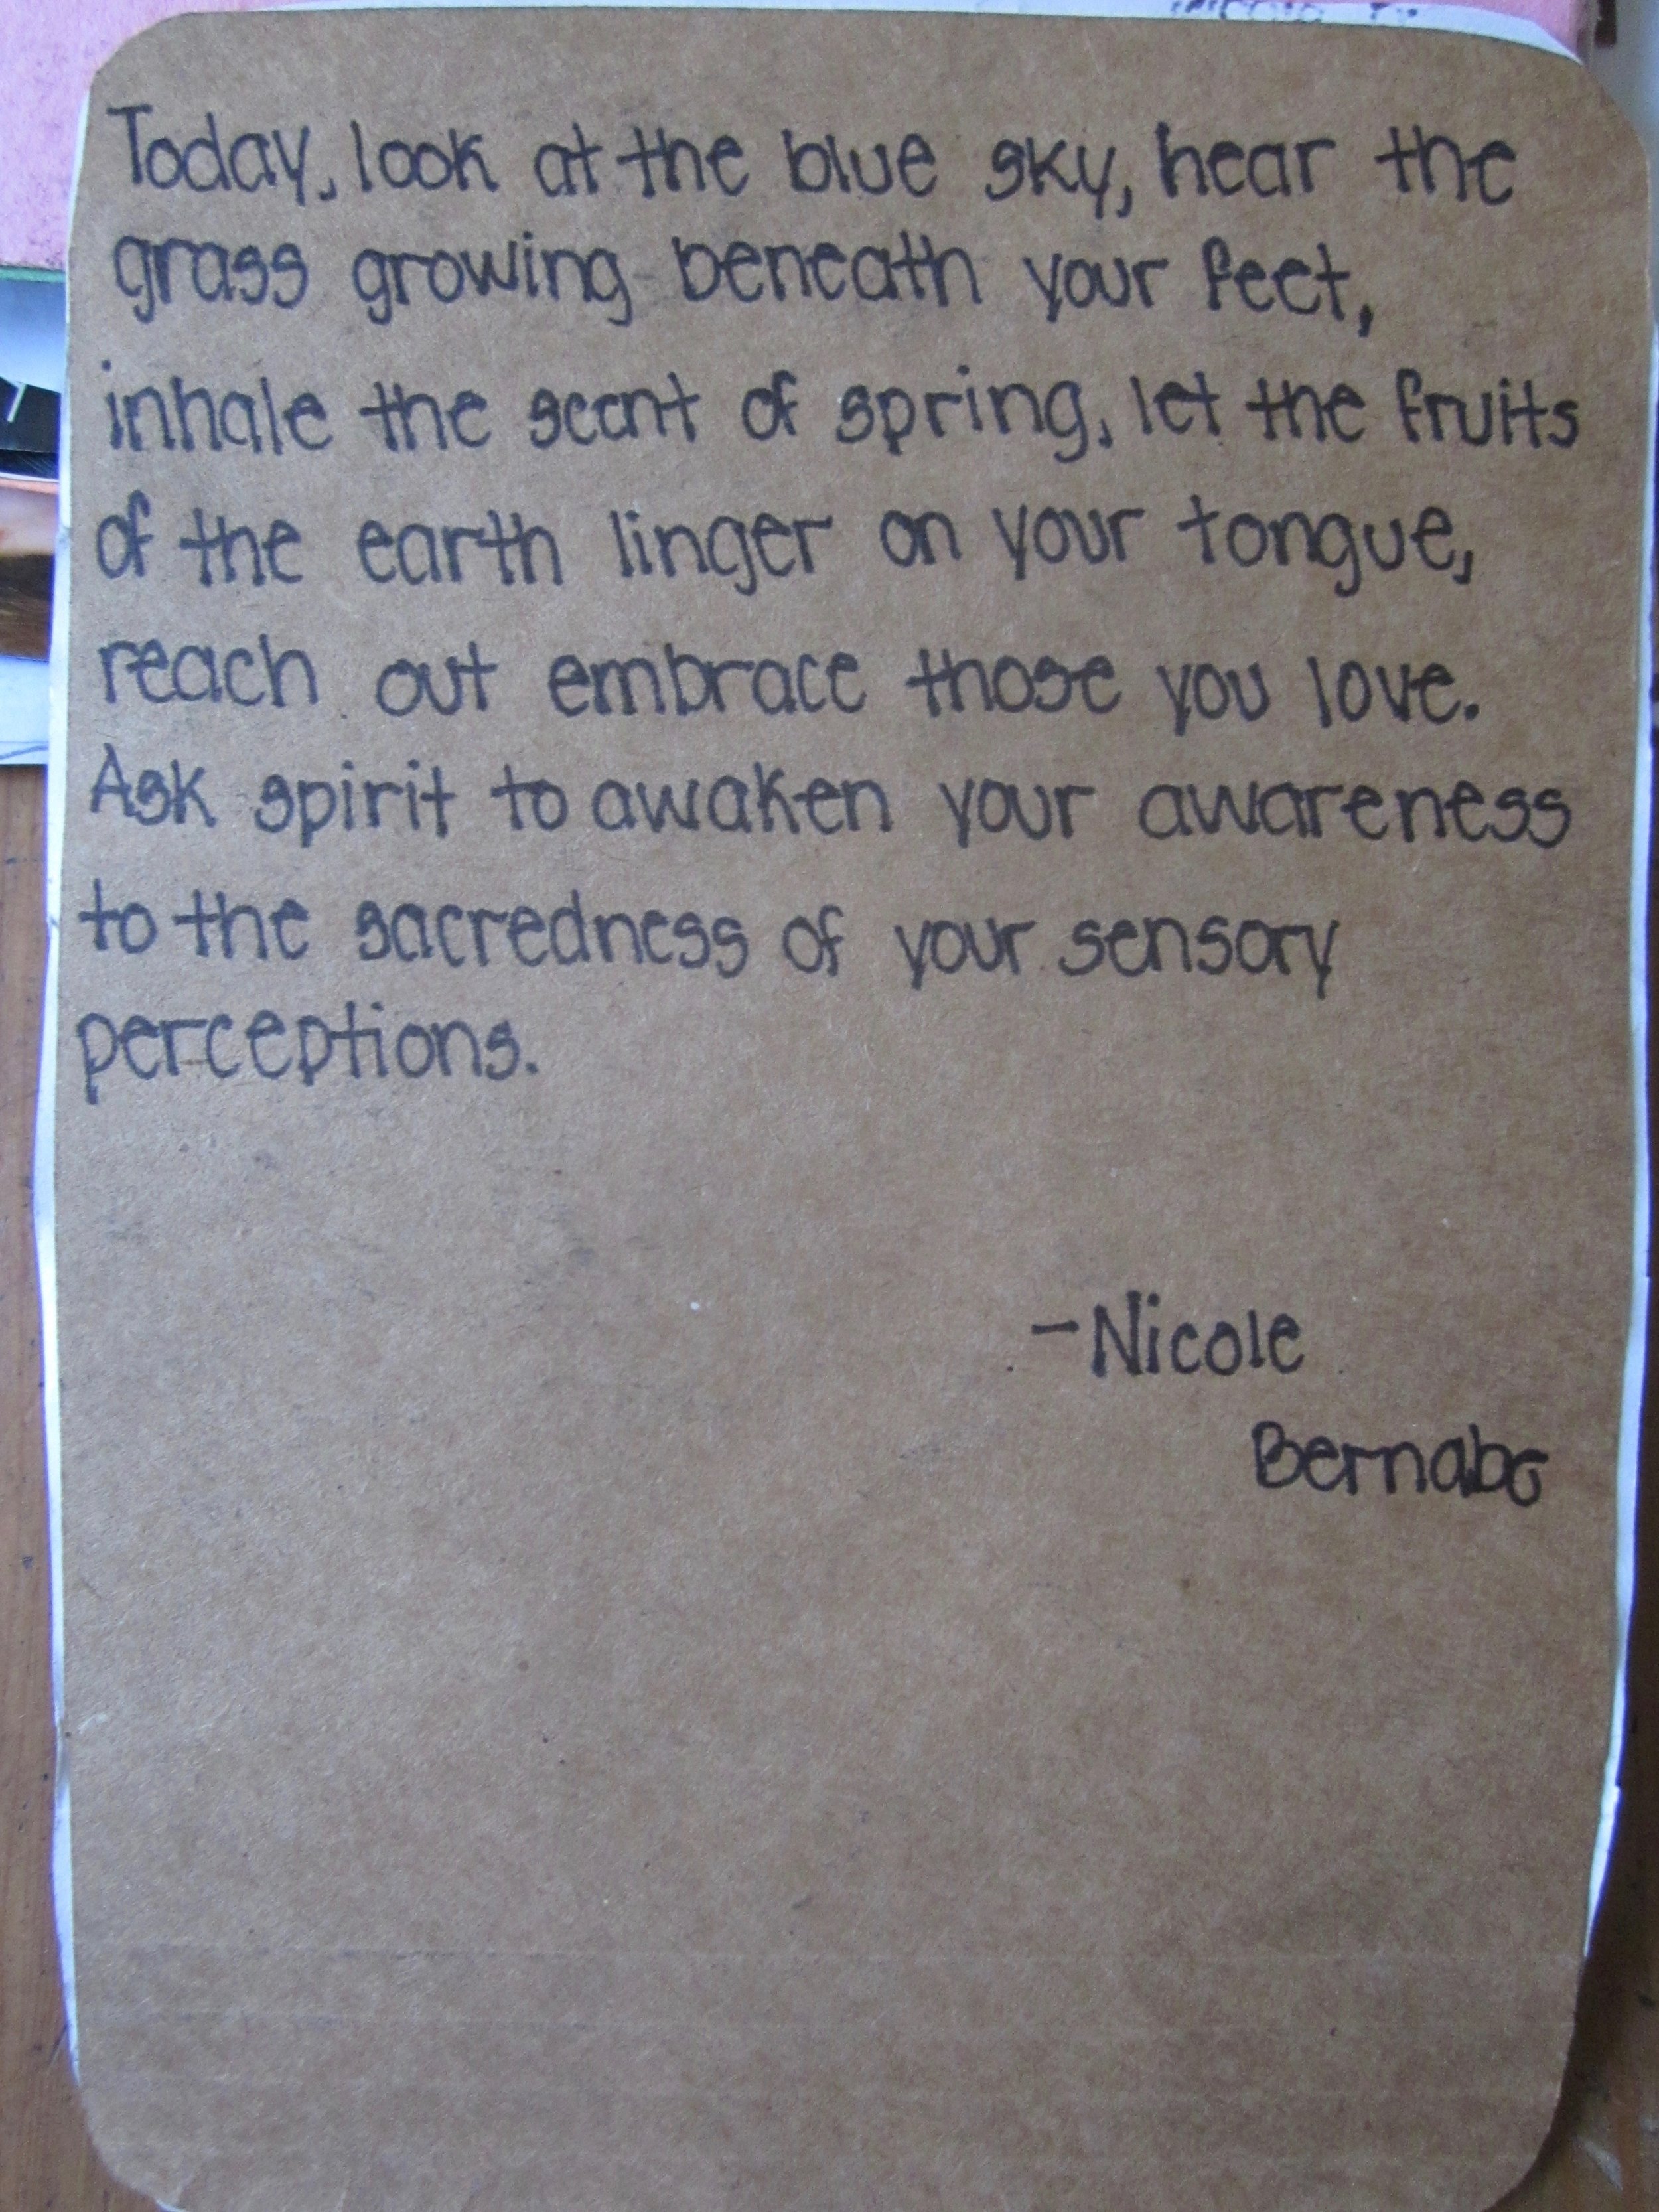 Today, look at the blue sky, hear the
grass growing beneath your feet,
inhale the scent of spring, let the fruits
of the earth linger on your tongue,
reach out embrace those you love.
Ask spirit to awaken your awareness
to the sacredness of your sensory
perceptions.
-Nicole
Bernabe